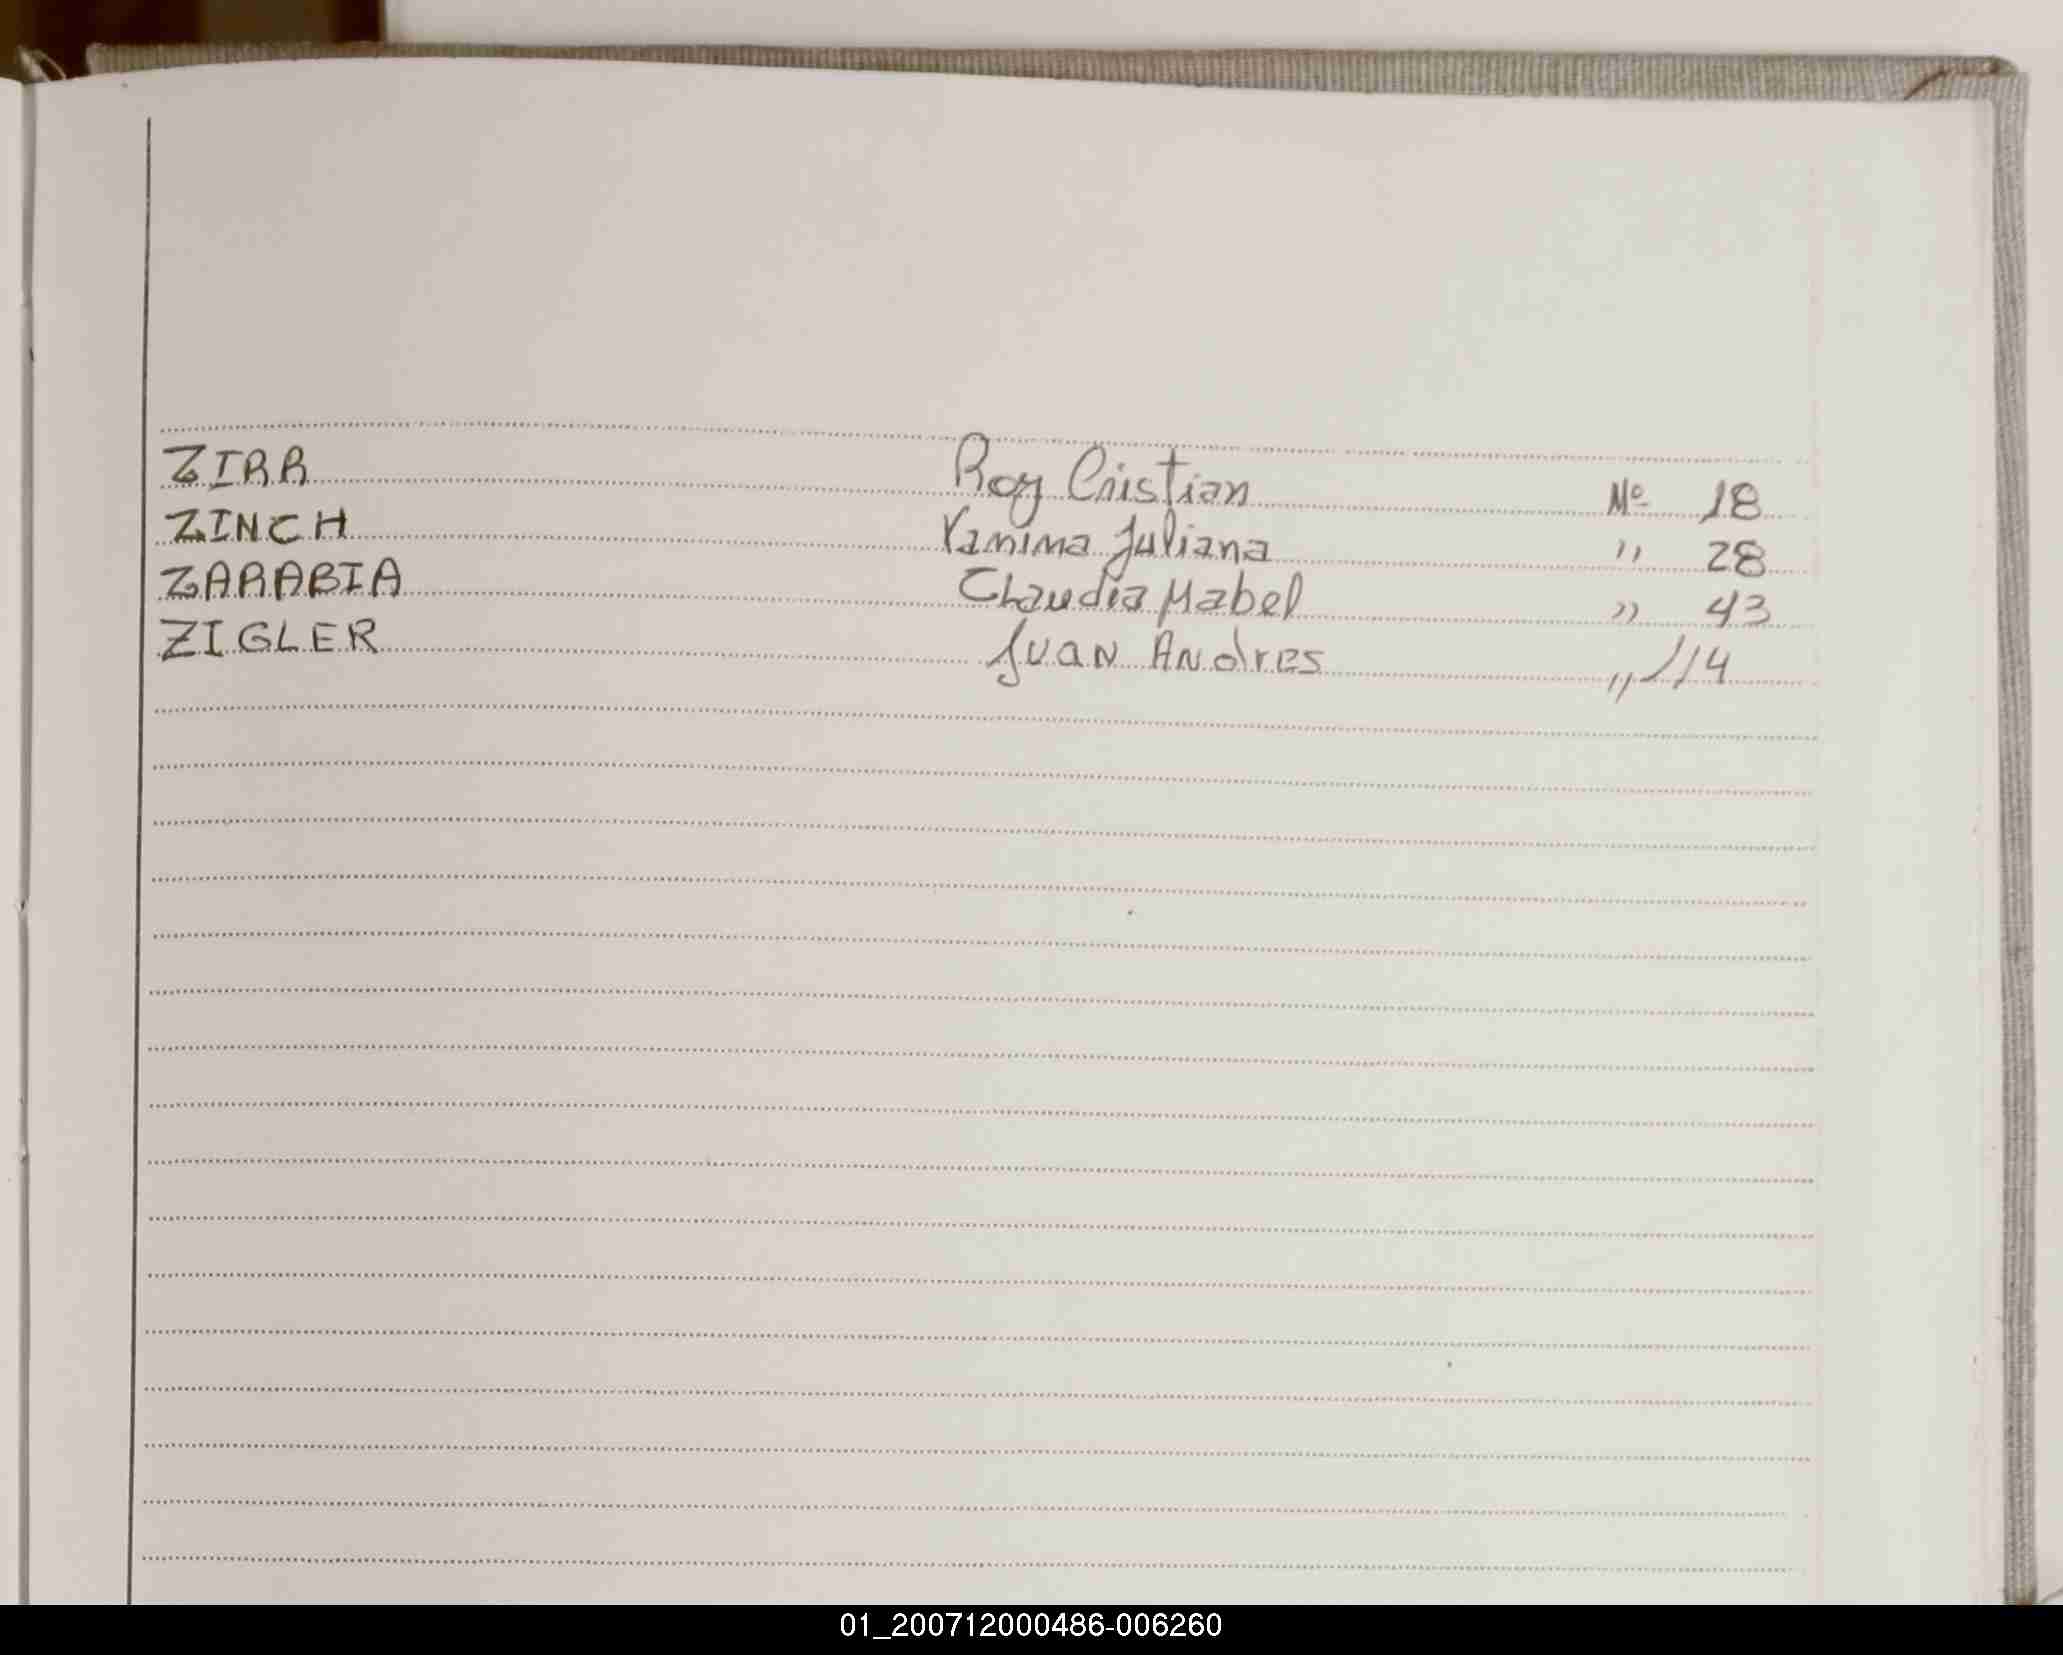 ZIRR Roy Cristian Nº 18
ZINCH Yamima Juliana " 28
ZARABIA Claudia Mabel " 43
ZIGLER Juan Andres " 114
01_200712000486-006260